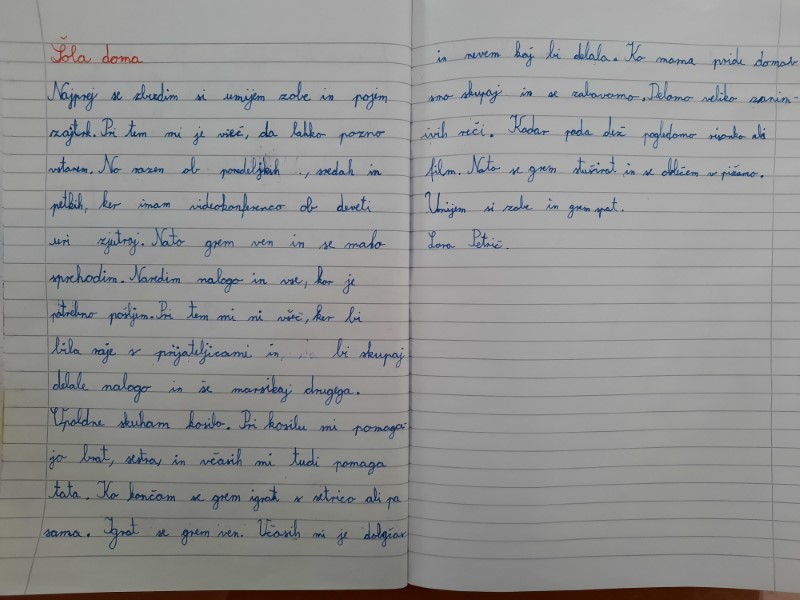 Šola doma
Najprej se zbudim si umijem zobe in pojem
zajtrk. Pri tem mi je všeč, da lahko pozno
vstanem. No razen ob ponedeljkih, sredah in
petkih, ker imam videokonferenco ob deveti
uri zjutraj. Nato grem ven in se malo
sprehodim. Naredim nalogo in vse, kar je
potrebno pošljem. Pri tem mi ni všeč, ker bi
bila raje s prijateljicami in bi skupaj
delale nalogo in še marsikaj drugega.
Upoldne skuham kosilo. Pri kosilu mi pomaga-
jo brat, sestra in včasih mi tudi pomaga
tata. Ko končam se grem igrat s sestrico ali pa
sama. Igrat se grem ven. Včasih mi je dolgčas
in nevem kaj bi delala. Ko mama pride domov
smo skupaj in se zabavamo. Delamo veliko zanim-
ivih reči. Kadar pada dež pogledamo risanko ali
film. Nato se grem stuširat in se oblečem v pižamo.
Umijem si zobe in grem spat.
Lara Petrič.